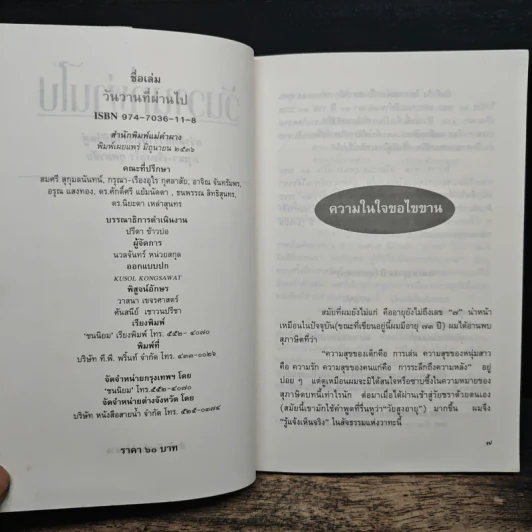 ชื่อเล่ม
วันวานที่ผ่านไป
ISBN 974-7036-11-8
สำนักพิมพ์แม่คำผาง
พิมพ์เผยแพร่ มิถุนายน ๒๕๓๖
คณะที่ปรึกษา
สมศรี สุกุมลนันทน์, กรุณา-เรืองอุไร กุศลาสัย, อาจิณ จันทรัมพร,
อรุณ แสงทอง, ดร.ศักดิ์ศรี แย้มนัดดา, ธนพรรณ สิทธิสุนทร,
ดร.นิยะดา เหล่าสุนทร
บรรณาธิการดำเนินงาน
ปรีดา ข้าวบ่อ
ผู้จัดการ
นวลจันทร์ หน่วยสกุล
ออกแบบปก
KUSOL KONGSAWAT
พิสูจน์อักษร
วาสนา เขจรศาสตร์
คันสนีย์ เชาวนปรีชา
เรียงพิมพ์
"ชนนิยม" เรียงพิมพ์ โทร. ๕๕๒-๔๐๗๐
พิมพ์ที่
บริษัท ที.พี. พริ้นท์ จำกัด โทร. ๔๓๓-๐๐๒๖
จัดจำหน่ายกรุงเทพฯ โดย
"ชนนิยม" โทร. ๕๕๒-๔๐๗๐
จัดจำหน่ายต่างจังหวัด โดย
บริษัท หนังสือสายน้ำ จำกัด โทร. ๕๒๕-๐๓๗๔
ราคา ๖๐ บาท
ความในใจขอไขขาน
สมัยที่ผมยังไม่แก่ คืออายุยังไม่ถึงเลข "๗" นำหน้า
เหมือนในปัจจุบัน(ขณะที่เขียนอยู่นี้ผมมีอายุ ๗๓ ปี) ผมได้อ่านพบ
สุภาษิตที่ว่า
"ความสุขของเด็กคือ การเล่น ความสุขของหนุ่มสาว
คือ ความรัก ความสุขของคนแก่คือ การระลึกถึงความหลัง" อยู่
บ่อย ๆ แต่ดูเหมือนผมจะมิได้สนใจหรือซาบซึ้งในความหมายของ
สุภาษิตบทนี้เท่าไรนัก ต่อมาเมื่อได้ผ่านเข้าสู่วัยชราด้วยตนเอง
(สมัยนี้เขามักใช้คำพูดที่รื่นหูว่า"วัยสูงอายุ") มากขึ้น ผมจึง
"รู้แจ้งเห็นจริง" ในสัจธรรมแห่งวาทะนี้
๗